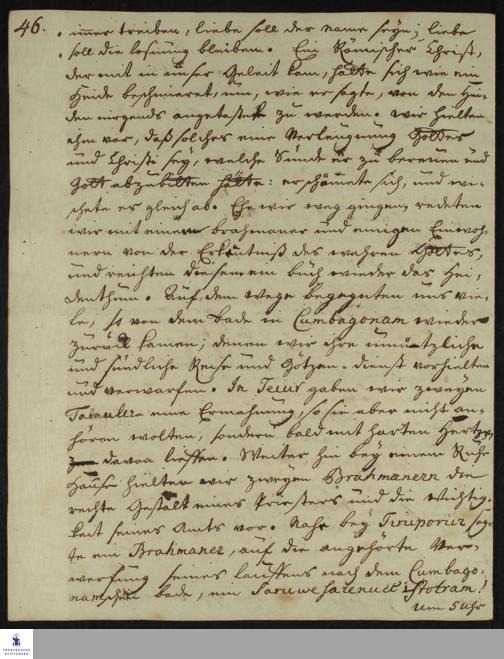 46. immer treiben, liebe soll der name seyn; liebe
soll die losung bleiben. Ein Römischer Christ,
der mit in unser Geleit kam, hatte sich wie ein
Heide beschmieret, um, wie er sagte, von den Hei-
den nirgends angetastet zu werden. wir hielten
ihm vor, daß solches eine Verleugnung Gottes
und Christi sey, welche Sünde er zu bereuen und
Gott abzubitten hätte: er schämete sich, und wi-
schete es gleich ab. Ehe wir weg gingen, redeten
wir mit einem brahmaner und einigen Einwoh-
nern von der Erkäntniß des wahren Gottes,
und reichten diesem ein buch wieder das Hei-
denthum. Auf dem wege begegneten uns vie-
le, so von dem bade in Cumbagonam wieder
zurück kamen; denen wir ihre unnützliche
und sündliche Reise und Götzen-dienst vorhielten
und verwarfen. In gaben wir zweyen
Tamulern eine Ermahnung, so sie aber nicht an-
hören wolten, sondern bald mit harten Hertzen
davon lieffen. Weiter hin bey einem Ruhe
Hause hielten wir zweyen Brahmanern die
rechte Gestalt eines Priesters und die Wichtig-
keit seines Amts vor. Nahe bey sag-
te ein Brahmaner, auf die angehörte Ver-
werfung seines lauffens nach dem Cumbago-
namschen bade, ein
um 5 Uhr
FRANCKESCHE
STIFTUNGEN